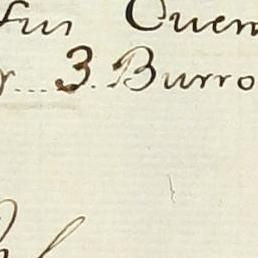 fui Cuen
r... 3. Burro